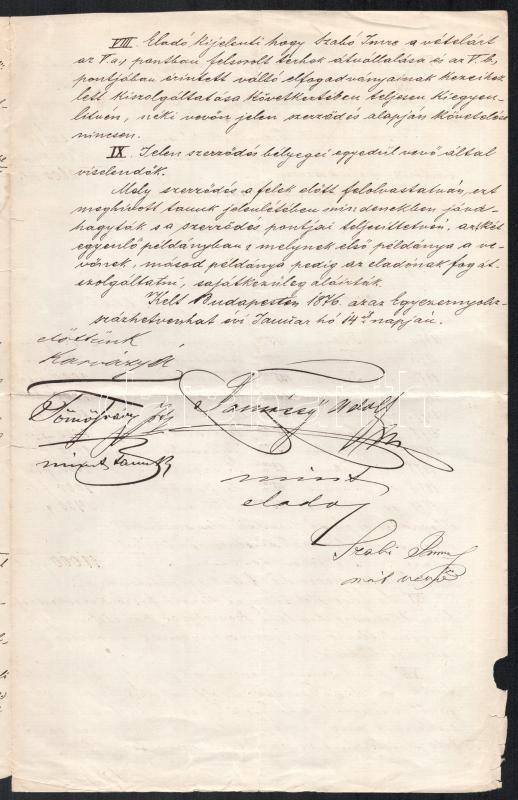 VIII. Eladó kijelenti hogy Szabó Imre a vételárt
az V.a, pontban felsorolt terhek átvállalása és az V.b,
pontjában érintett váltó elfogadványainak kezeihez
lett kiszolgáltatása következtében teljesen kiegyen-
litvén, neki vevőn jelen szerződés alapján követelése
nincsen.
IX. Jelen szerződés bélyegei egyedül vevő által
viselendők.
Mely szerződés a felek előtt felolvastatván, ezt
meghivott tanuk jelenlétében mindenekben jóvá-
hagyták s a szerződés pontjai teljesittetvén, azt két
egyenlő példányban, melynek első példánya a ve-
vőnek, másod példánya pedig az eladónak fog át-
szolgáltatni, sajátkezüleg aláirták.
Kelt Budapesten 1876 azaz Egyezernyolc-
százhetvenhat évi Januar hó 14 napján.
előttünk
mint tanuk
Adolf
mint
eladó
Szabó Imre
mint vevő